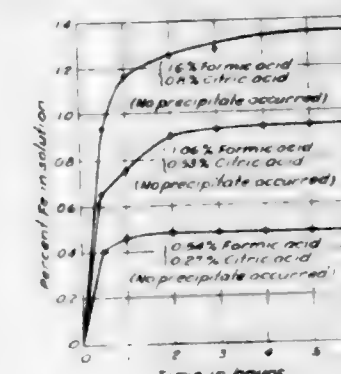 1.4
1.2
1.0
0.8
0.6
0.4
0.2
0
Percent Fe in solution
1.6% Formic acid
0.8% Citric acid
(No precipitate occurred)
1.06% Formic acid
0.53% Citric acid
(No precipitate occurred)
0.54% Formic acid
0.27% Citric acid
(No precipitate occurred)
0 1 2 3 4 5
Time in hours